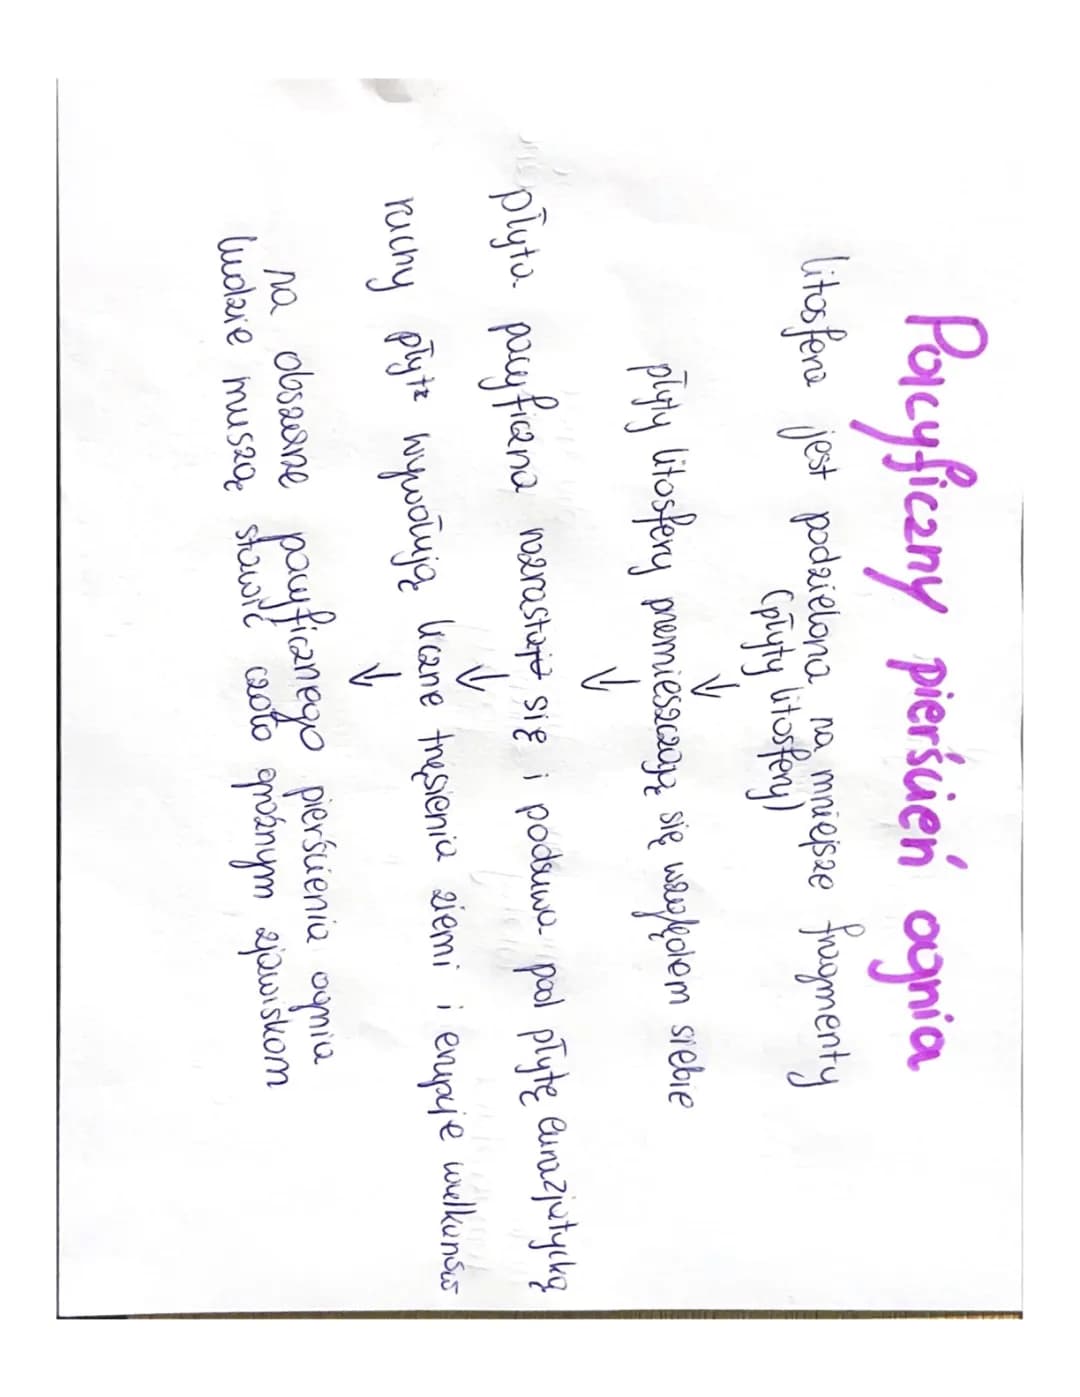 Pacyficzny pierścień ognia
litosfera jest podzielona na mniejsze fragmenty
(płyty litosfery)
↓
płyty litosfery przemieszczają się względem siebie
↓
płyta pacyficzna rozrastaje się i podsuwa pod płytę eurazjatycką
↓
ruchy płyt wywołują liczne trzęsienia ziemi i erupcje wulkanów
↓
na obszarze pacyficznego pierścienia ognia
ludzie muszą stawić czoło groźnym zjawiskom